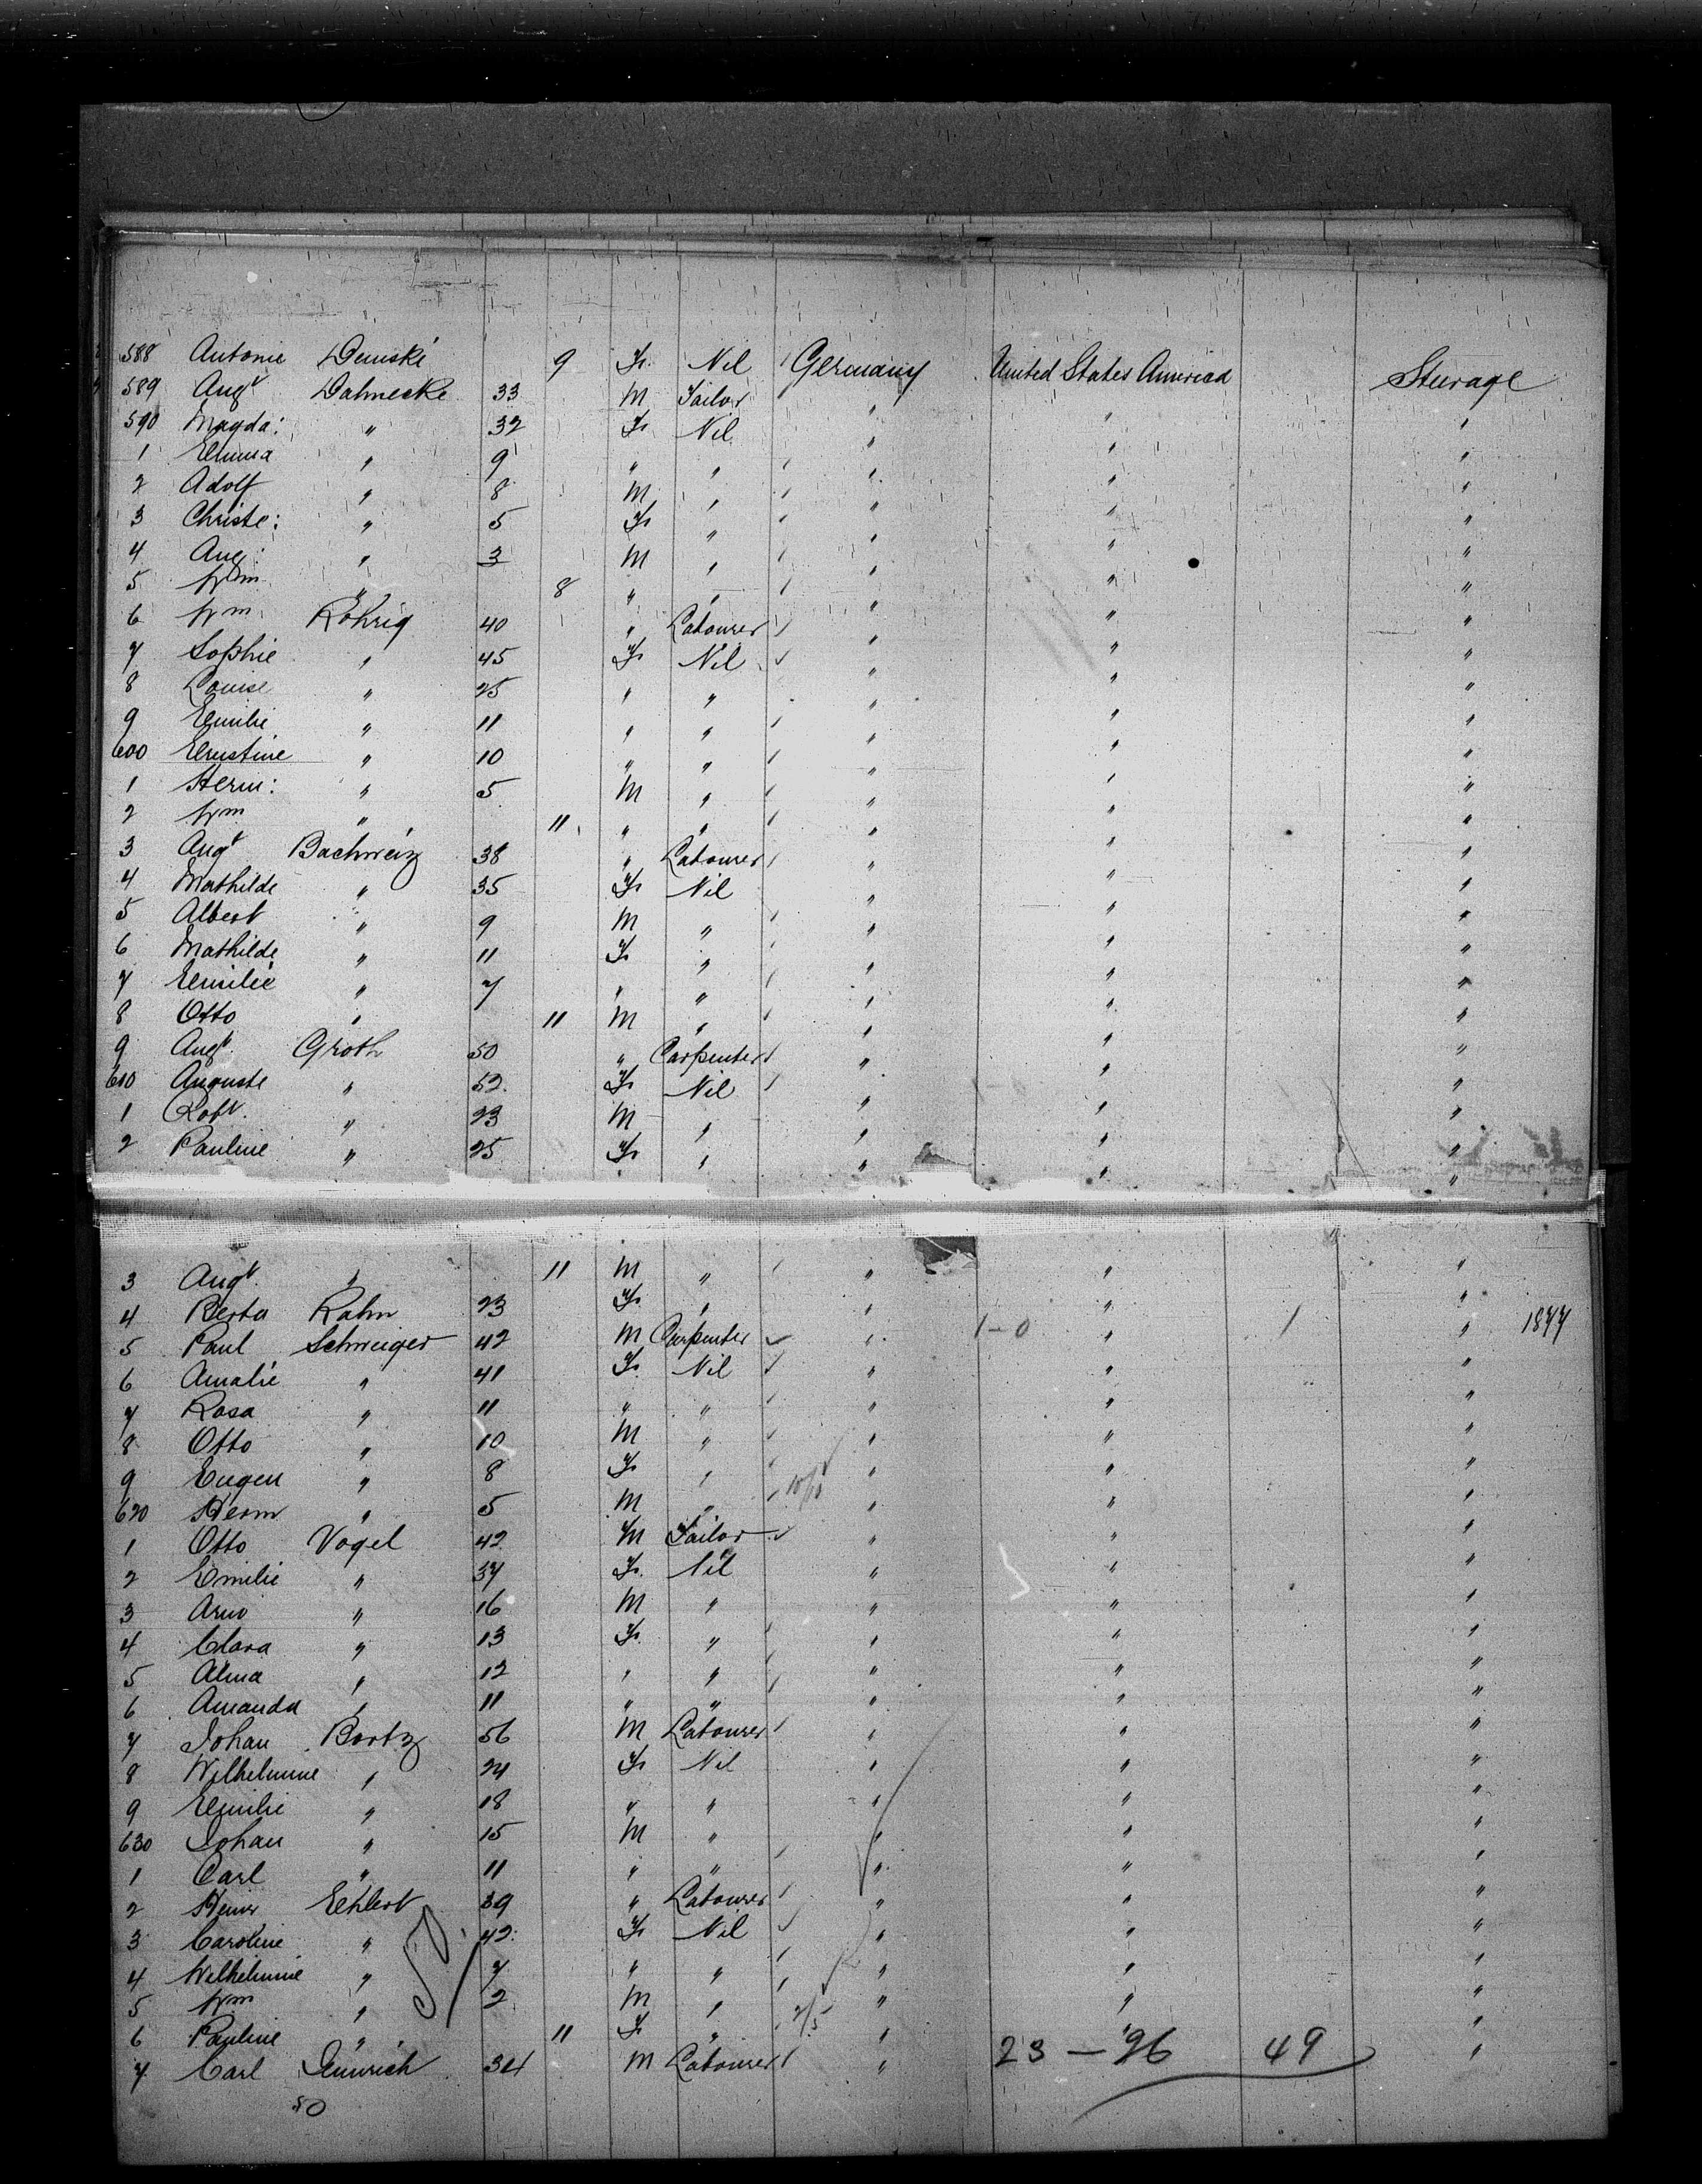 588 Antonie Demski 9 F. Nil Germany United States America Steerage
589 Augt Dahnecke 33 M Tailor " " "
590 Magda: " 32 F. Nil " " "
1 Emma " 9 " " " " "
2 Adolf " 8 M " " " "
3 Christe: " 5 F. " " " "
4 Aug: " 3 M " " " "
5 Wm " 8 " " " " "
6 Wm Rohrig 40 " Labourer " " "
7 Sophie " 45 F. Nil " " "
8 Louise " 25 " " " " "
9 Emilie " 11 " " " " "
600 Ernstine " 10 " " " " "
1 Herm: " 5 M " " " "
2 Wm " 11 " " " " "
3 Augt Bachweiz 38 " Labourer " " "
4 Mathilde " 35 F. Nil " " "
5 Albert " 9 M " " " "
6 Mathilde " 11 F. " " " "
7 Emilie " 7 " " " " "
8 Otto " 11 M " " " "
9 Augt. Groth 50 " Carpenter " " "
610 Auguste " 52 F. Nil " " "
1 Robt. " 23 M " " " "
2 Pauline " 25 F. " " " "
3 Augt. " 11 M " " " "
4 Berta Rahn 23 F. " " " "
5 Paul Schweiger 42 M Carpenter " 1-0 " 1 " 1877
6 Amalie " 41 F. Nil " " "
7 Rosa " 11 " " " " "
8 Otto " 10 M " " " "
9 Eugen " 8 F. " " " "
620 Herm " 5 M " " " "
1 Otto Vogel 42 M Tailor " " "
2 Emilie " 37 F. Nil " " "
3 Arno " 16 M " " " "
4 Clara " 13 F. " " " "
5 Alma " 12 " " " " "
6 Amanda " 11 " " " " "
7 Johan Bortz 56 M Labourer " " "
8 Wilhelmine " 24 F. Nil " " "
9 Emilie " 18 " " " " "
630 Johan " 15 M " " " "
1 Carl " 11 " " " " "
2 Heinr Ehlert 39 " Labourer " " "
3 Caroline " 42 F. Nil " " "
4 Wilhelmine " 7 " " " " "
5 Wm " 2 M " 2/5 " " "
6 Pauline " 11 F. " " " "
7 Carl Heinrich 34 M Labourer " 23 - 26 49 "
50